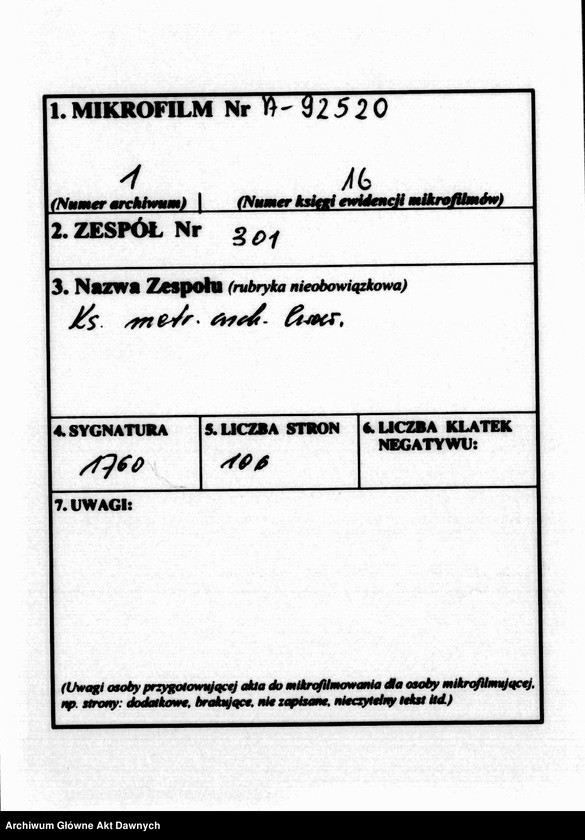 1. MIKROFILM Nr A-92520
1 16
(Numer archiwum) (Numer księgi ewidencji mikrofilmów)
2. ZESPÓŁ Nr 301
3. Nazwa Zespołu (rubryka nieobowiązkowa)
Ks. metr. arch. Lwow.
4. SYGNATURA 5. LICZBA STRON 6. LICZBA KLATEK
NEGATYWU:
1760 106
7. UWAGI:
(Uwagi osoby przygotowującej akta do mikrofilmowania dla osoby mikrofilmującej,
np. strony: dodatkowe, brakujące, nie zapisane, nieczytelny tekst itd.)
Archiwum Główne Akt Dawnych